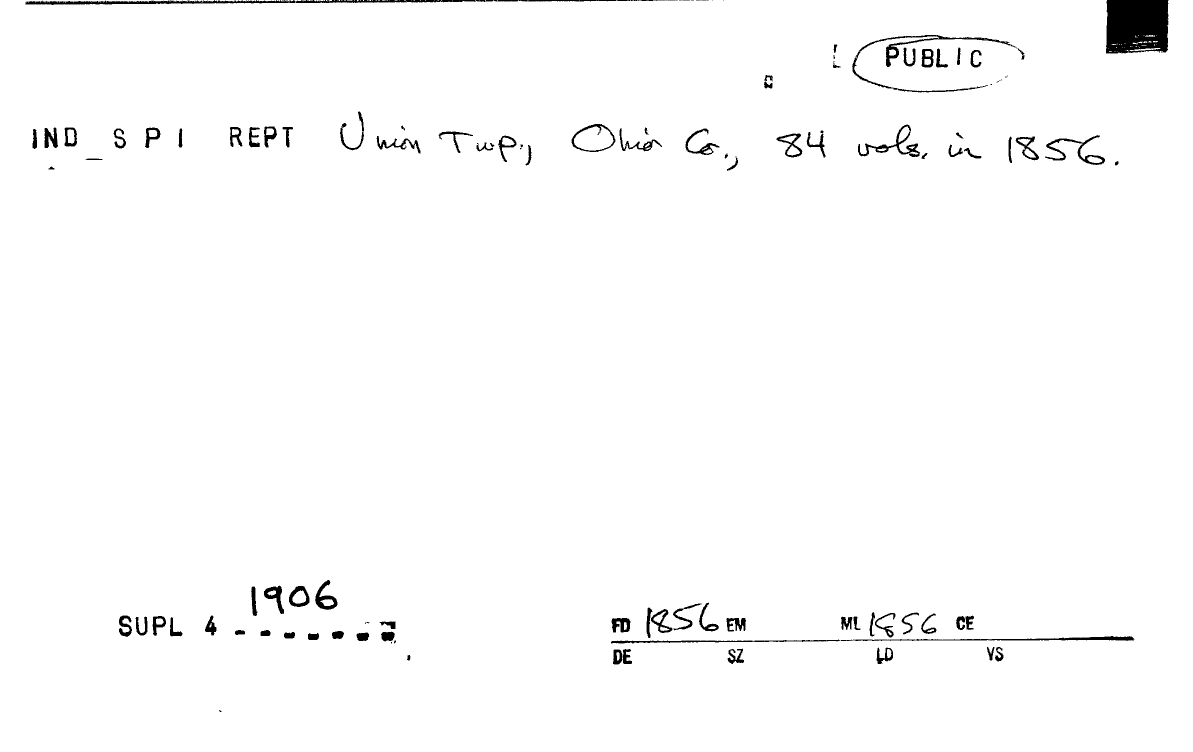 PUBLIC
IND S P I REPT Union Twp., Ohio Co., 84 vols. in 1856.
1906
SUPL 4
FD 1856 EM ML 1856 CE
DE SZ LD VS